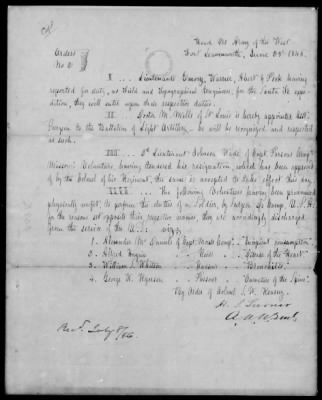 Head Qrs Army of the West
Fort Leavenworth, June 29th 1846.
Orders
No. 6
I ... Lieutenants Emory, Warner, Abert & Peck having
reported for duty, as Field and Topographical Engineers, for the Santa Fe expe-
dition, they will enter upon their respective duties.
II ... Doctor M. Mills of St. Louis is hereby appointed Asst.
Surgeon to the Battalion of Light Artillery — he will be recognized and respected
as such.
III ... Lieutenant Coleman of Capt. Parsons Compy.
Missouri Volunteers, having tendered his resignation, which has been approved
of by the Colonel of his Regiment, the same is accepted to take effect this day.
IIII ... The following Volunteers having been pronounced
physically unfit to perform the duties of a Soldier, by Surgeon De Camp, U.S.A.
for the reasons set opposite their respective names, they are accordingly discharged
from the service of the U.S.: viz:
1. Alexander Mc Daniel of Capt. Compy. — "Incipient consumption".
2. Alfred " Reid — "Disease of the Heart"
3. William S. " — "Bronchitis"
4. George " Parsons — "Curvature of the Spine"
By Order of Colonel S. W. Kearny.
H. S. Turner
A. A. A. Genl.
Recd. July 8/46.